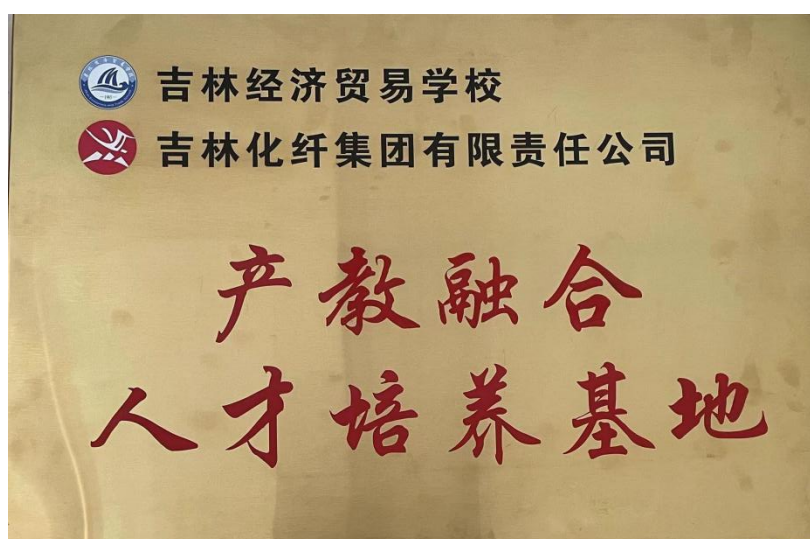 吉林经济贸易学校
吉林化纤集团有限责任公司
产教融合
人才培养基地